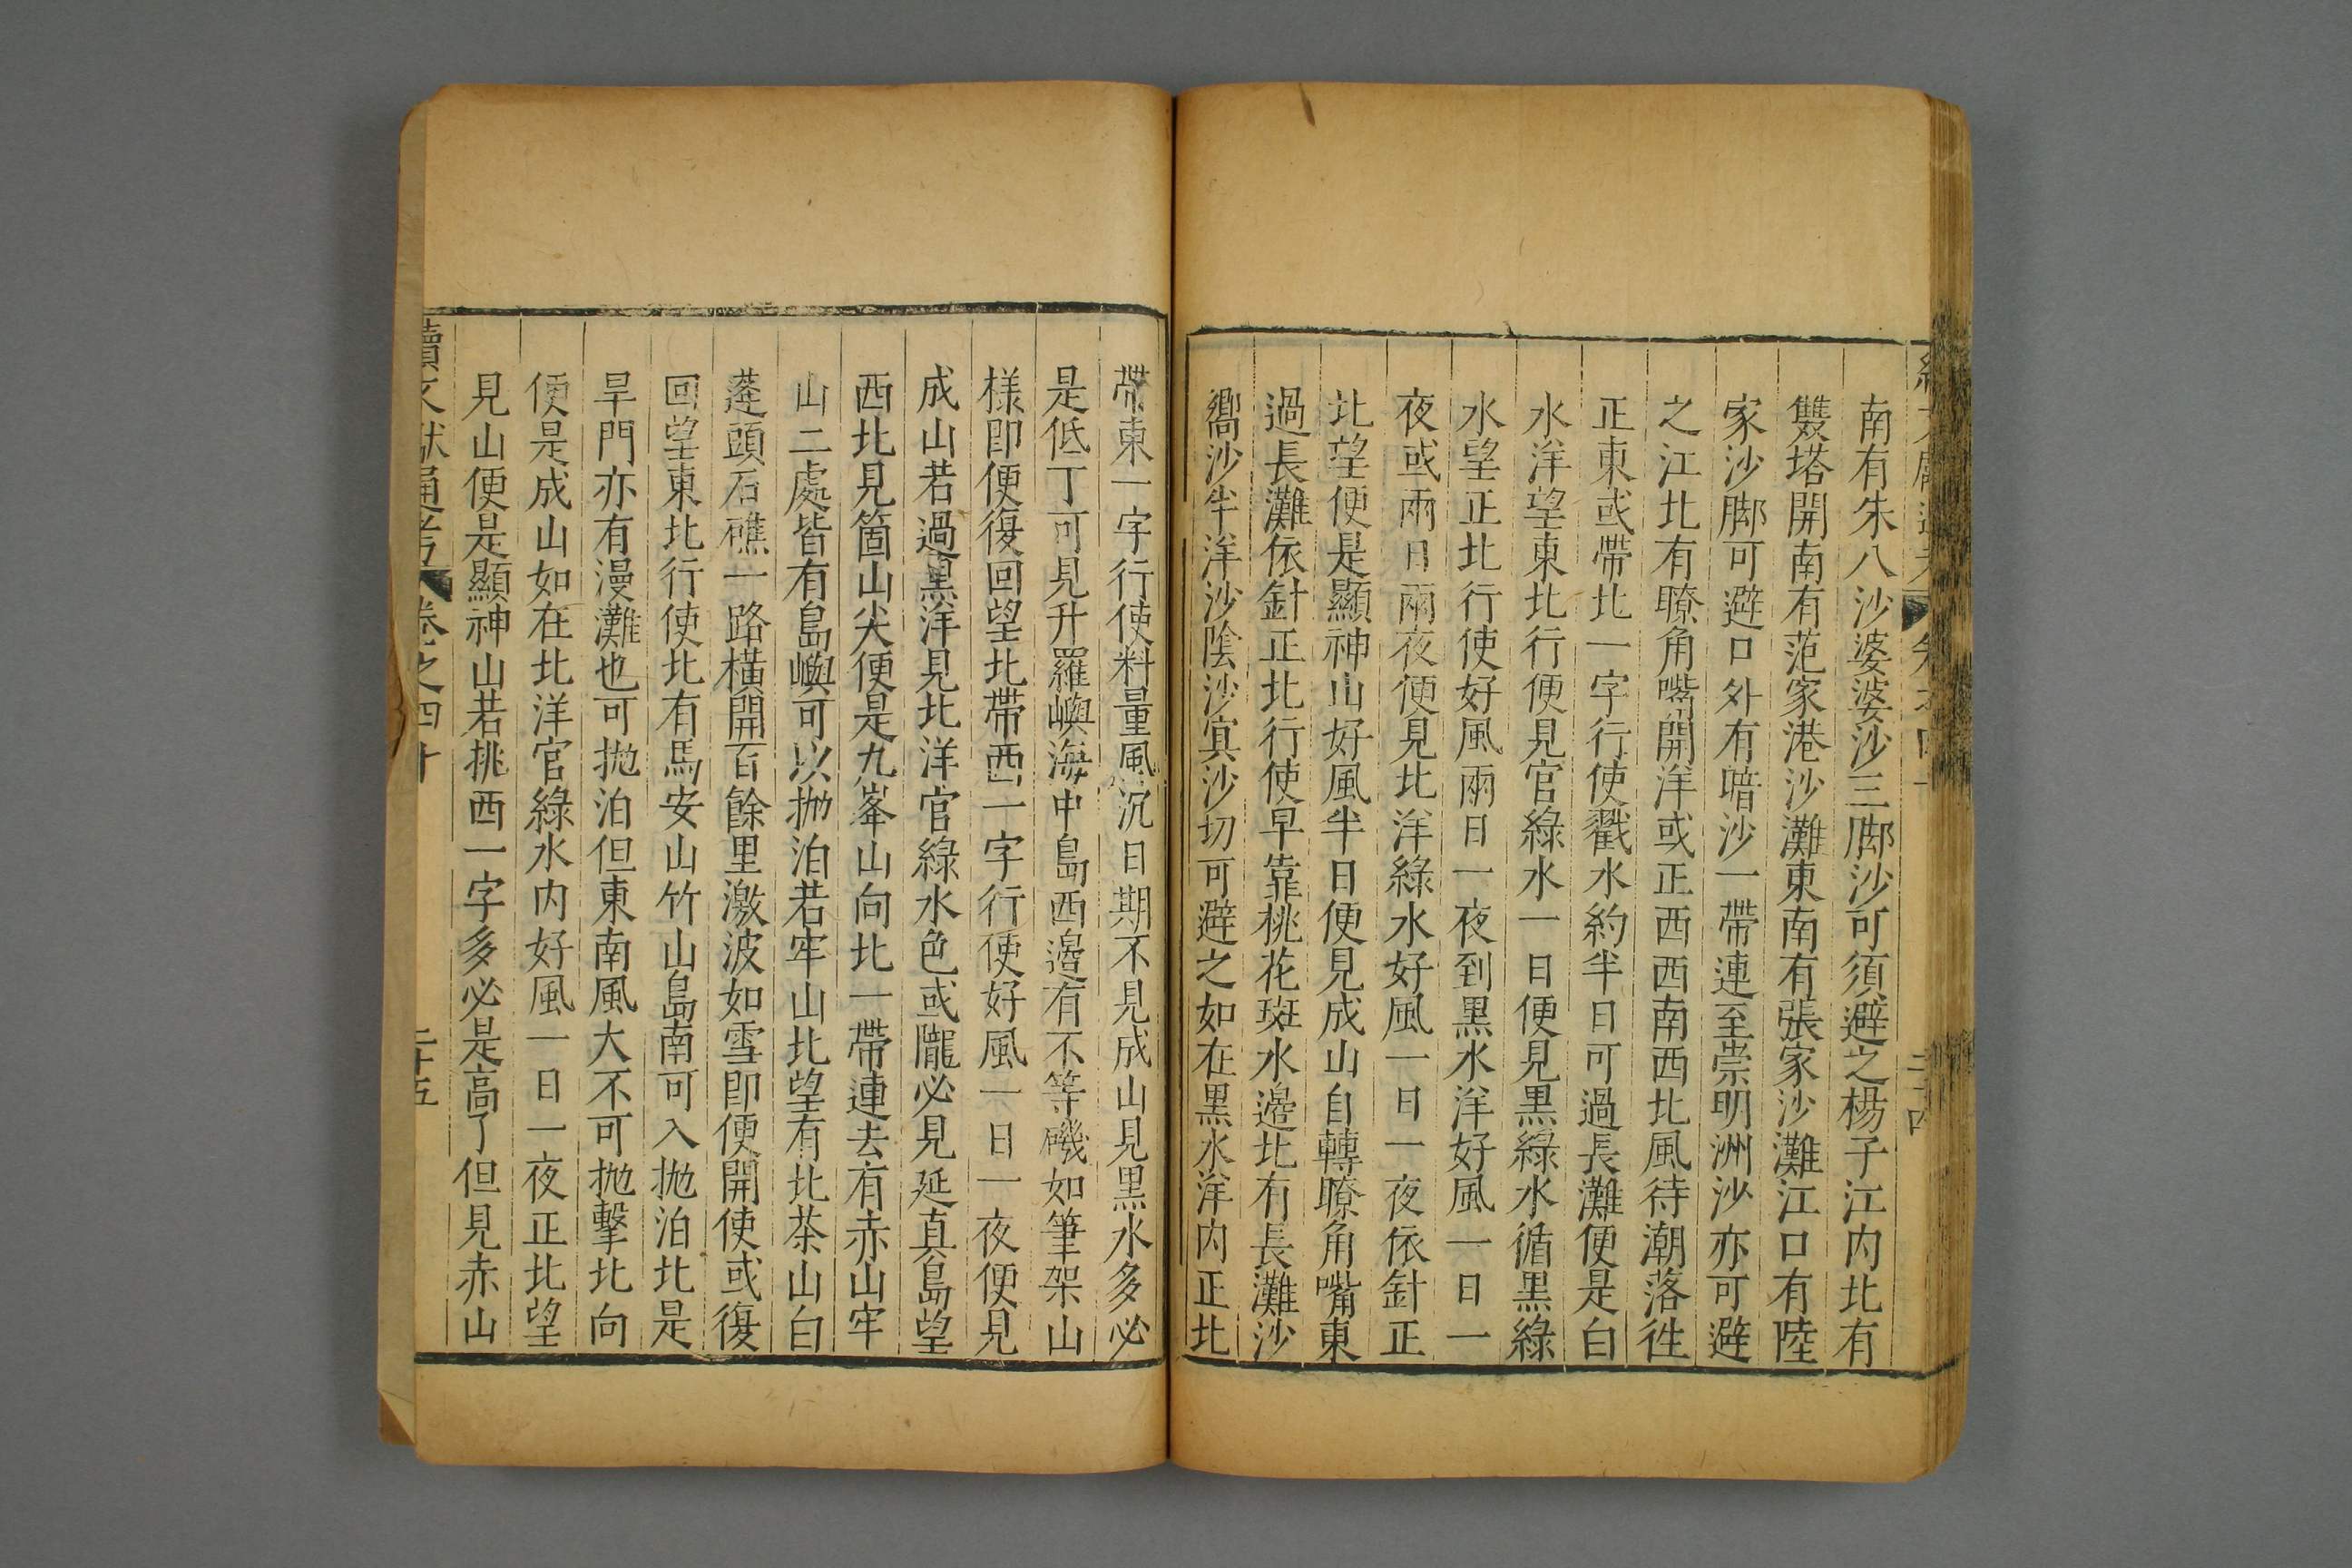 南有朱八沙婆婆沙三脚沙可須避之楊子江内北有
雙塔開南有范家港沙灘東南有張家沙灘江口有陸
家沙脚可避口外有暗沙一帶連至崇明洲沙亦可避
之江北有瞭角嘴開洋或正西西南西北風待潮落徃
正東或帶北一字行使戳水約半日可過長灘便是白
水洋望東北行便見官綠水一日便見黒綠水循黒綠
水望正北行使好風兩日一夜到黒水洋好風一日一
夜或兩日兩夜便見北洋綠水好風一日一夜依針正
北望便是顯神山好風半日便見成山自轉瞭角嘴東
過長灘依針正北行使早靠桃花斑水邉北有長灘沙
嚮沙半洋沙陰沙寅沙切可避之如在黒水洋内正北
帶東一字行使料量風沉日期不見成山見黒水多必
是低丁可見升羅嶼海中島西邉有不等磯如筆架山
様即便復回望北帶西一字行使好風一日一夜便見
成山若過黒洋見北洋官綠水色或隴必見延真島望
西北見箇山尖便是九峯山向北一帶連去有赤山牢
山二處皆有島嶼可以抛泊若牢山北望有北茶山白
蓬頭石礁一路横開百餘里激波如雪即便開使或復
回望東北行使北有馬安山竹山島南可入抛泊北是
旱門亦有漫灘也可抛泊但東南風大不可抛擊北向
便是成山如在北洋官綠水内好風一日一夜正北望
見山便是顯神山若挑西一字多必是高了但見赤山
續文獻通考 卷之四十 二十五